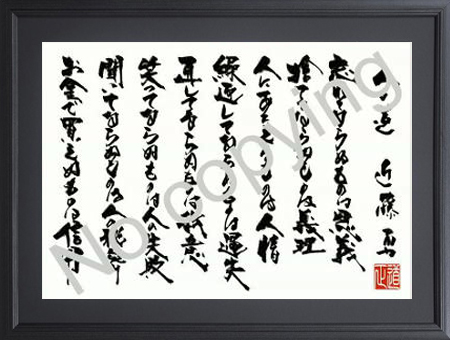 人の道 近藤勇
忘れてならぬものは恩義
捨ててならぬものは義理
人にあたえるものは人情
繰返してならぬものは過失
通してならぬものは我意
笑ってならぬものは人の失敗
聞いてならぬものは人の秘密
お金で買えぬものは信用
No copying